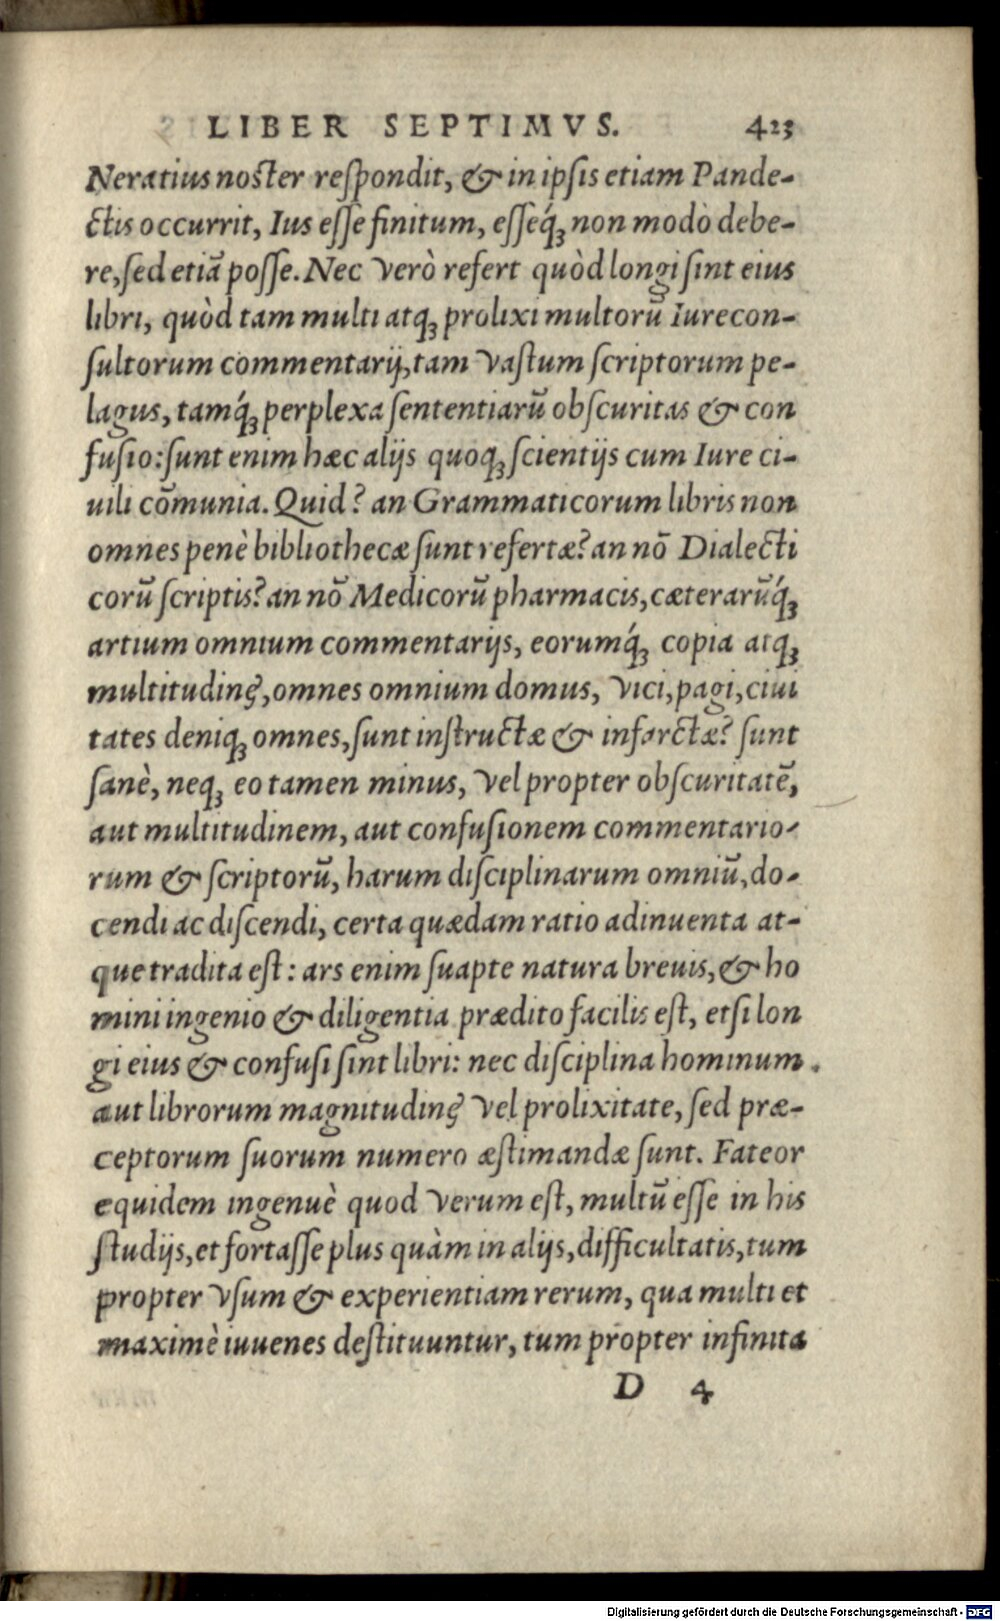 LIBER SEPTIMVS. 423
Neratius noster reſpondit, & in ipſis etiam Pande-
ctis occurrit, Ius eſſe finitum, eſſeq́ꝫ non modò debe-
re, ſed etiã poſſe. Nec verò refert quòd longi ſint eius
libri, quòd tam multi atqꝫ prolixi multorũ Iurecon-
ſultorum commentarij, tam vaſtum ſcriptorum pe-
lagus, tamq́ꝫ perplexa ſententiarũ obſcuritas & con
fuſio: ſunt enim hæc alijs quoqꝫ ſcientijs cum Iure ci-
uili cõmunia. Quid? an Grammaticorum libris non
omnes penè bibliothecæ ſunt refertæ? an nõ Dialecti
corũ ſcriptis? an nõ Medicorũ pharmacis, cæterarũq́ꝫ
artium omnium commentarijs, eorumq́ꝫ copia atqꝫ
multitudinę, omnes omnium domus, vici, pagi, ciui
tates deniqꝫ omnes, ſunt inſtructæ & infarctæ? ſunt
ſanè, neqꝫ eo tamen minus, vel propter obſcuritatẽ,
aut multitudinem, aut confuſionem commentario-
rum & ſcriptorũ, harum diſciplinarum omniũ, do-
cendi ac diſcendi, certa quædam ratio adinuenta at-
que tradita eſt: ars enim ſuapte natura breuis, & ho
mini ingenio & diligentia prædito facilis eſt, etſi lon
gi eius & confuſi ſint libri: nec diſciplina hominum
aut librorum magnitudinę vel prolixitate, ſed præ-
ceptorum ſuorum numero æſtimandæ ſunt. Fateor
equidem ingenuè quod verum eſt, multũ eſſe in his
ſtudijs, et fortaſſe plus quàm in alijs, difficultatis, tum
propter vſum & experientiam rerum, qua multi et
maximè iuuenes deſtituuntur, tum propter infinita
D 4
Digitalisierung gefördert durch die Deutsche Forschungsgemeinschaft - DFG